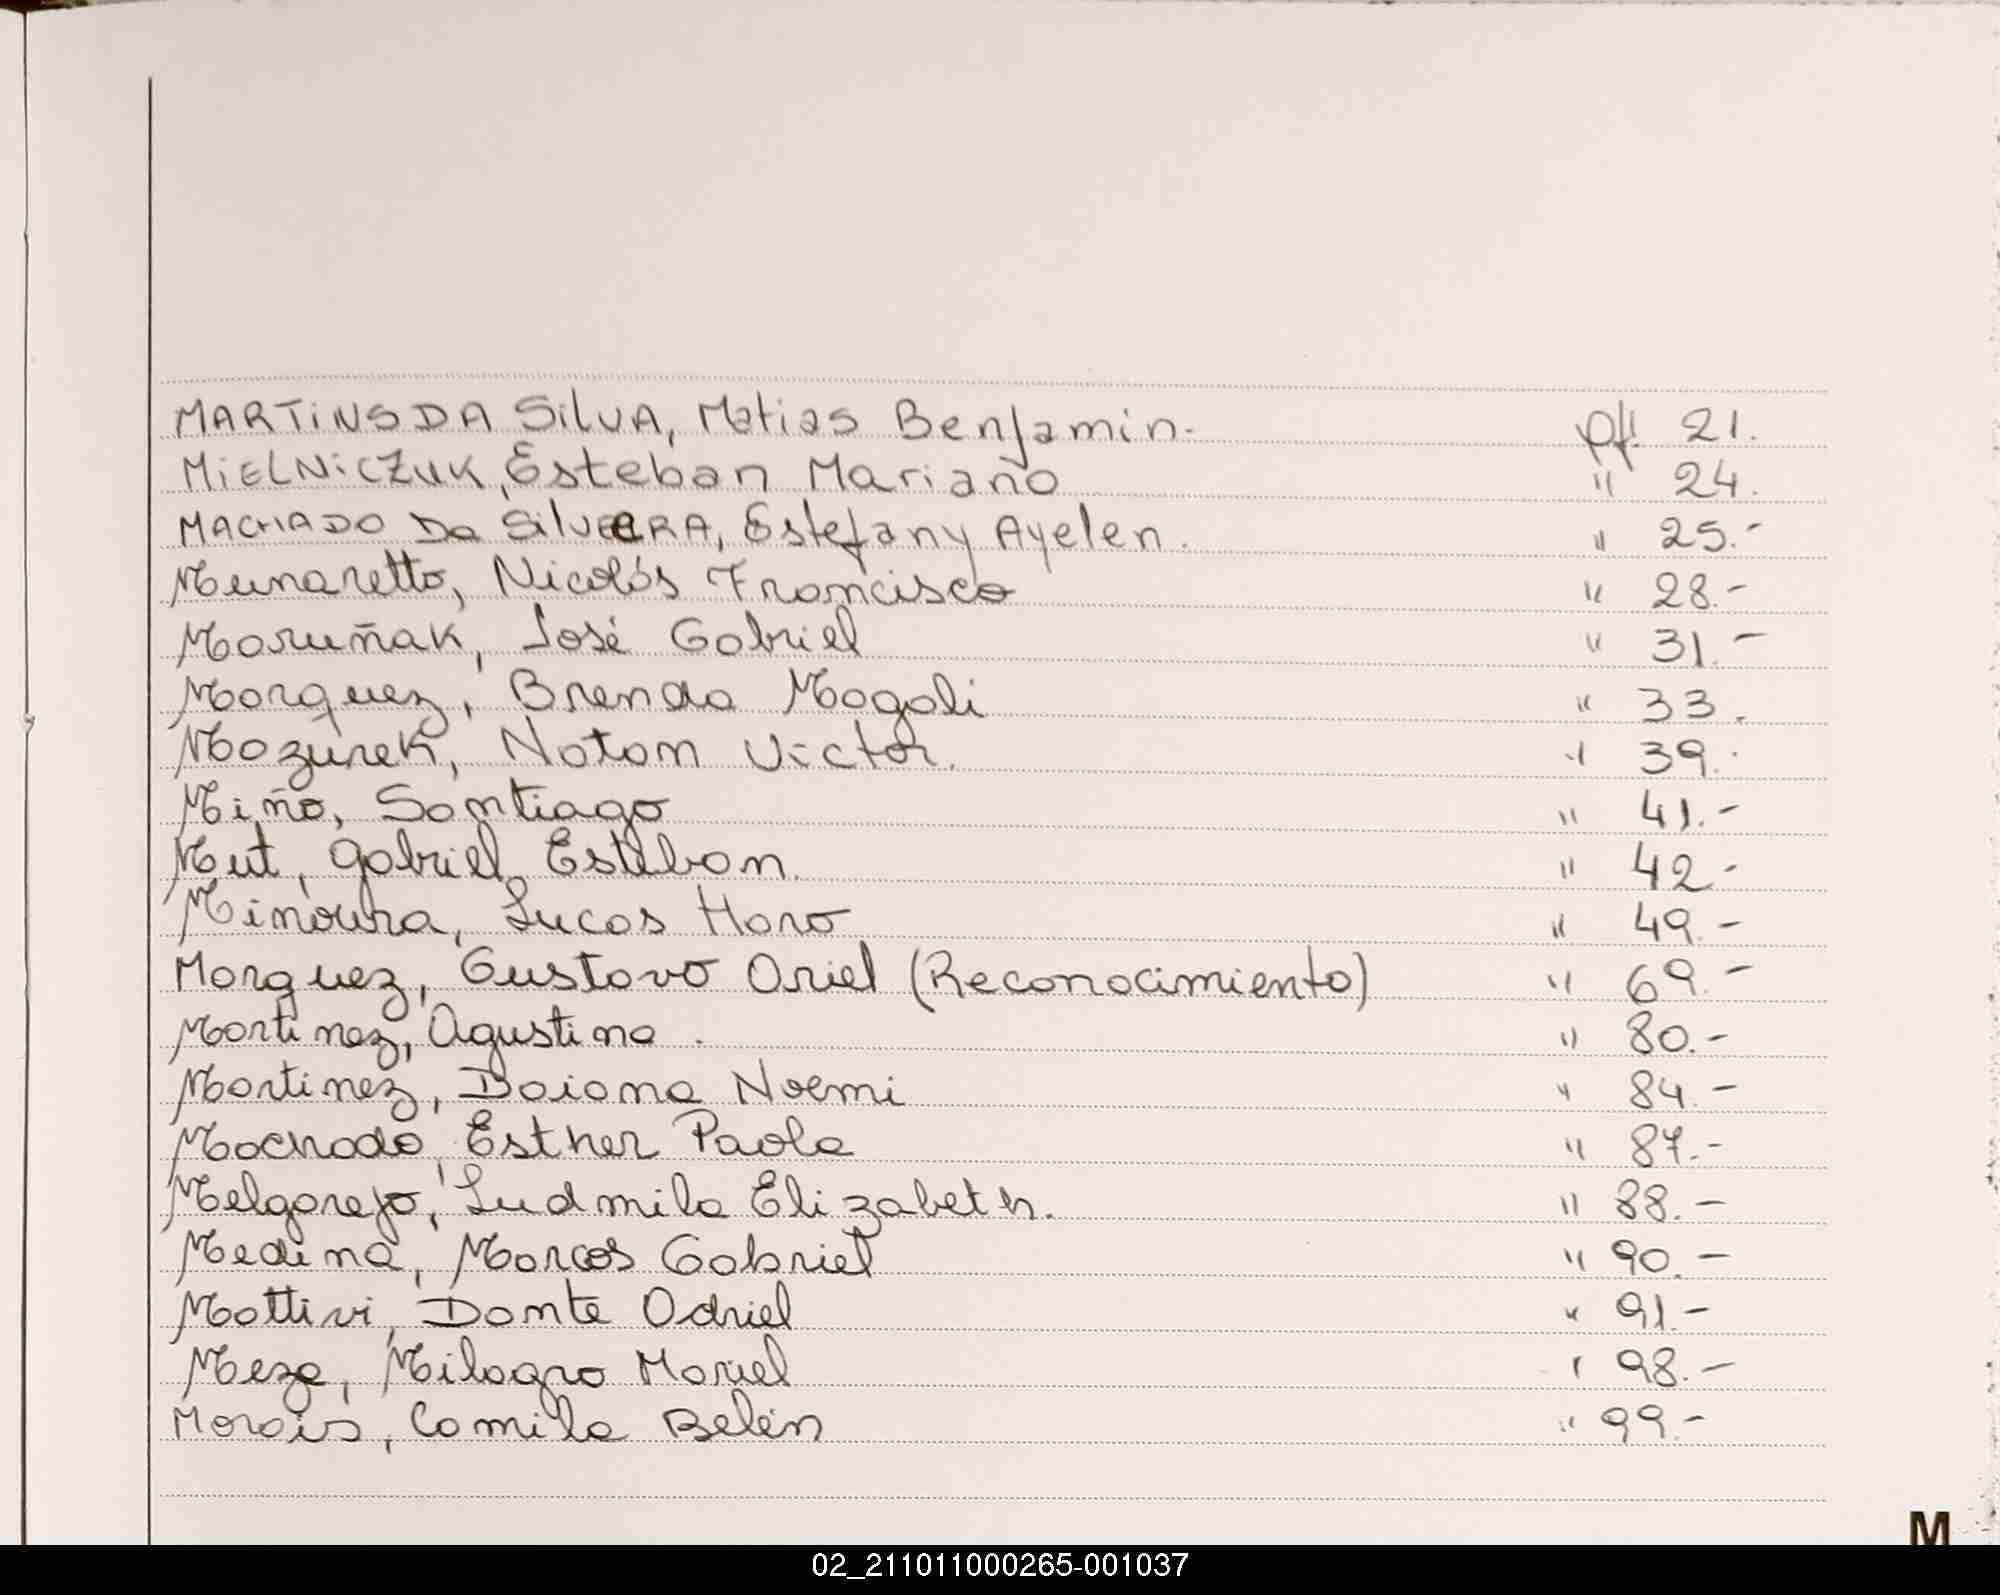 MARTINS DA SILVA, Matias Benjamin. pf. 21.
MIELNICZUK, Esteban Mariano " 24.
MACHADO Da SILVEIRA, Estefany Ayelen. " 25.-
Munaretto, Nicolás Francisco " 28.-
Maruñak, José Gabriel " 31.-
Marquez, Brenda Magali " 33.
Mazurek, Natan Victor. " 39.-
Miño, Santiago " 41.-
Mut, Gabriel Esteban. " 42.-
Minoura, Lucas Haro " 49.-
Marquez, Gustavo Oriel (Reconocimiento) " 69.-
Martinez, Agustina. " 80.-
Martinez, Daiana Noemi " 84.-
Machado, Esther Paola " 87.-
Melgarejo, Ludmila Elizabeth. " 88.-
Medina, Marcos Gabriel " 90.-
Mattivi, Dante Adriel " 91.-
Meza, Milagro Mariel " 98.-
Morais, Camila Belén " 99.-
M
02_211011000265-001037